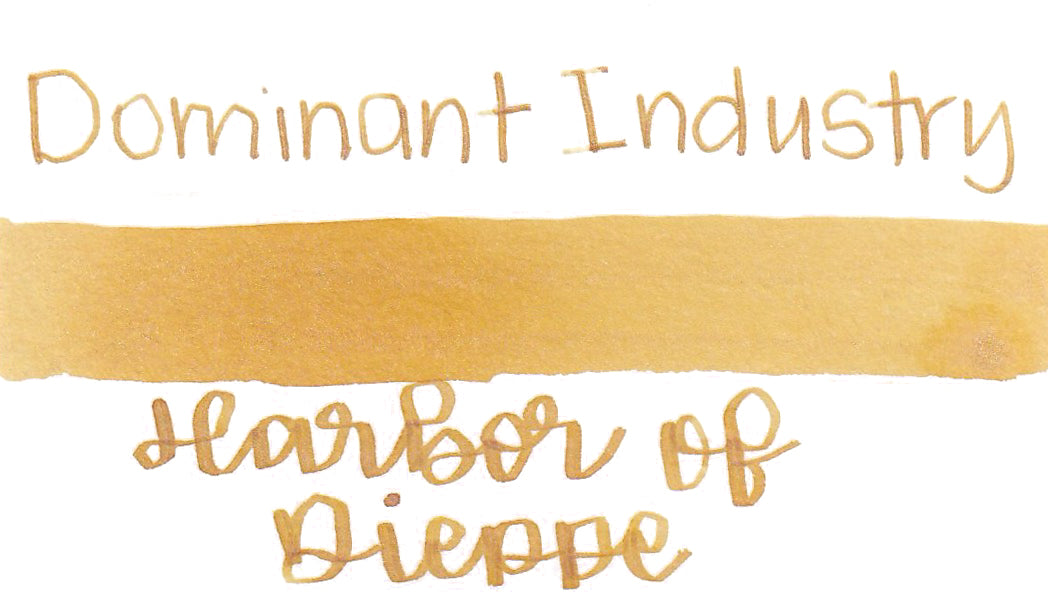 Dominant Industry
Harbor of
Dieppe